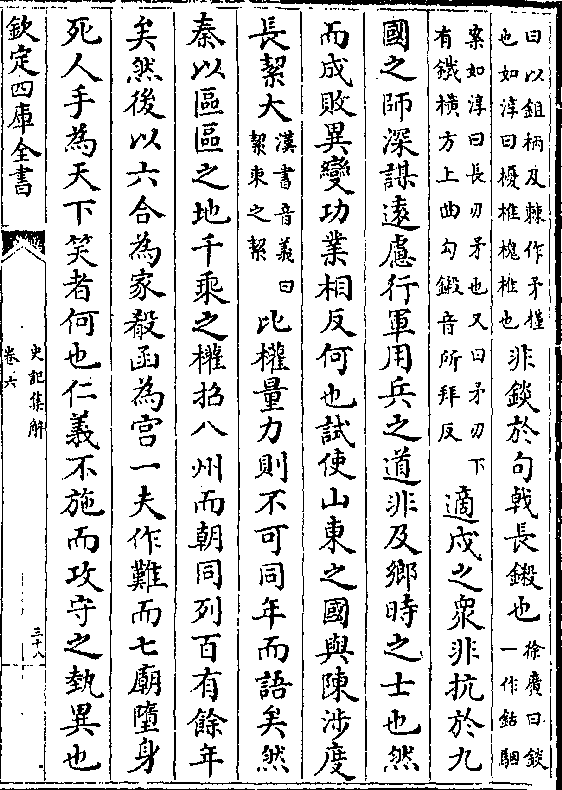 曰以鉏柄及棘作矛槿也如淳曰櫌椎槐椎也非錟於句戟長鎩也徐廣曰錟一作鈷駰
案如淳曰長刃矛也又曰矛刃下有鐵橫方上曲勾鎩音所拜反適戍之衆非抗於九
國之師深謀遠慮行軍用兵之道非及鄉時之士也然
而成敗異變功業相反何也試使山東之國與陳涉度
長絜大漢書音義曰絜束之絜比權量力則不可同年而語矣然
秦以區區之地千乘之權招八州而朝同列百有餘年
矣然後以六合為家殽函為宫一夫作難而七廟墮身
死人手為天下笑者何也仁義不施而攻守之埶異也
欽定四庫全書
史記集解
卷六
三十八